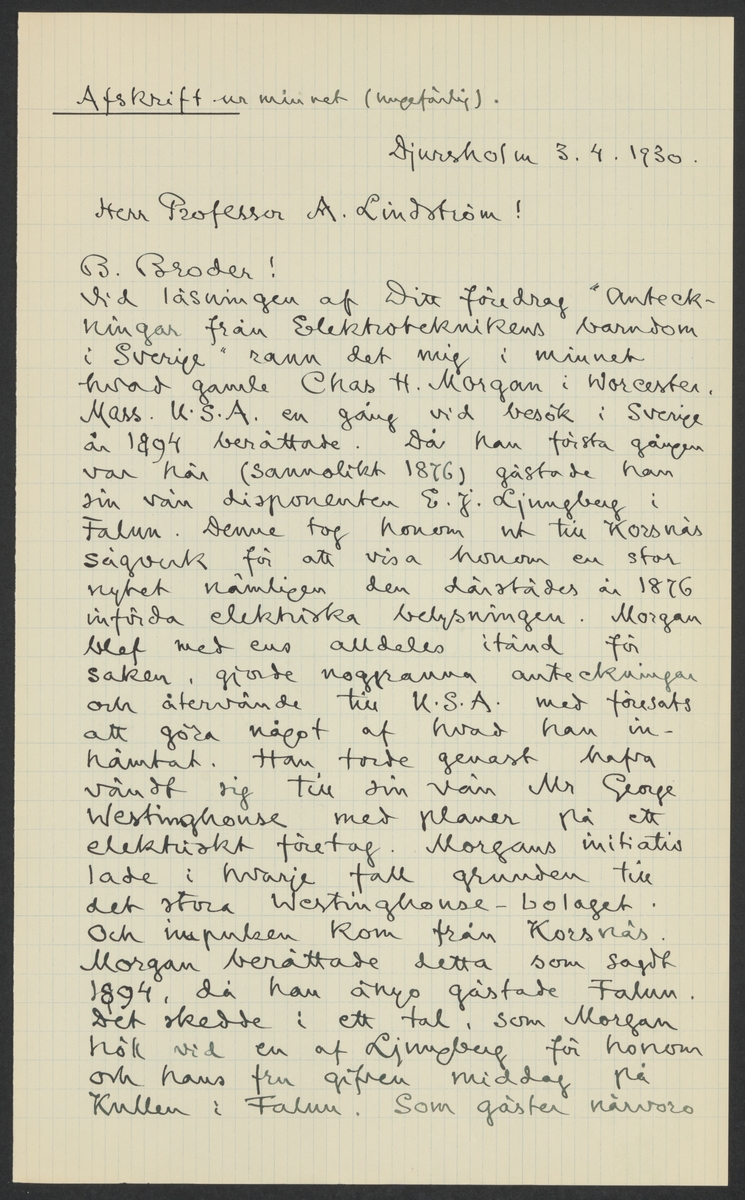 Afskrift ur minnet (ungefärlig).
Djursholm 3.4.1930.
Herr Professor A. Lindström!
B. Broder!
Vid läsningen af Ditt föredrag "Anteck-
ningar från Elektroteknikens barndom
i Sverige" rann det mig i minnet
hvad gamle Chas H. Morgan i Worcester,
Mass. U.S.A. en gång vid besök i Sverige
år 1894 berättade. Då han första gången
var här (sannolikt 1876) gästade han
sin vän disponenten E. J. Ljungberg i
Falun. Denne tog honom ut till Korsnäs
sågverk för att visa honom en stor
nyhet nämligen den därstädes år 1876
införda elektriska belysningen. Morgan
blef med ens alldeles itänd för
saken, gjorde noggranna anteckningar
och återvände till U.S.A. med föresats
att göra något af hvad han in-
hämtat. Han torde genast hafva
vändt sig till sin vän Mr George
Westinghouse med planer på ett
elektriskt företag. Morgans initiativ
lade i hvarje fall grunden till
det stora Westinghouse-bolaget.
Och impulsen kom från Korsnäs.
Morgan berättade detta som sagdt
1894, då han ånyo gästade Falun.
Det skedde i ett tal, som Morgan
höll vid en af Ljungberg för honom
och hans fru gifven middag på
Kullen i Falun. Som gäster närvoro